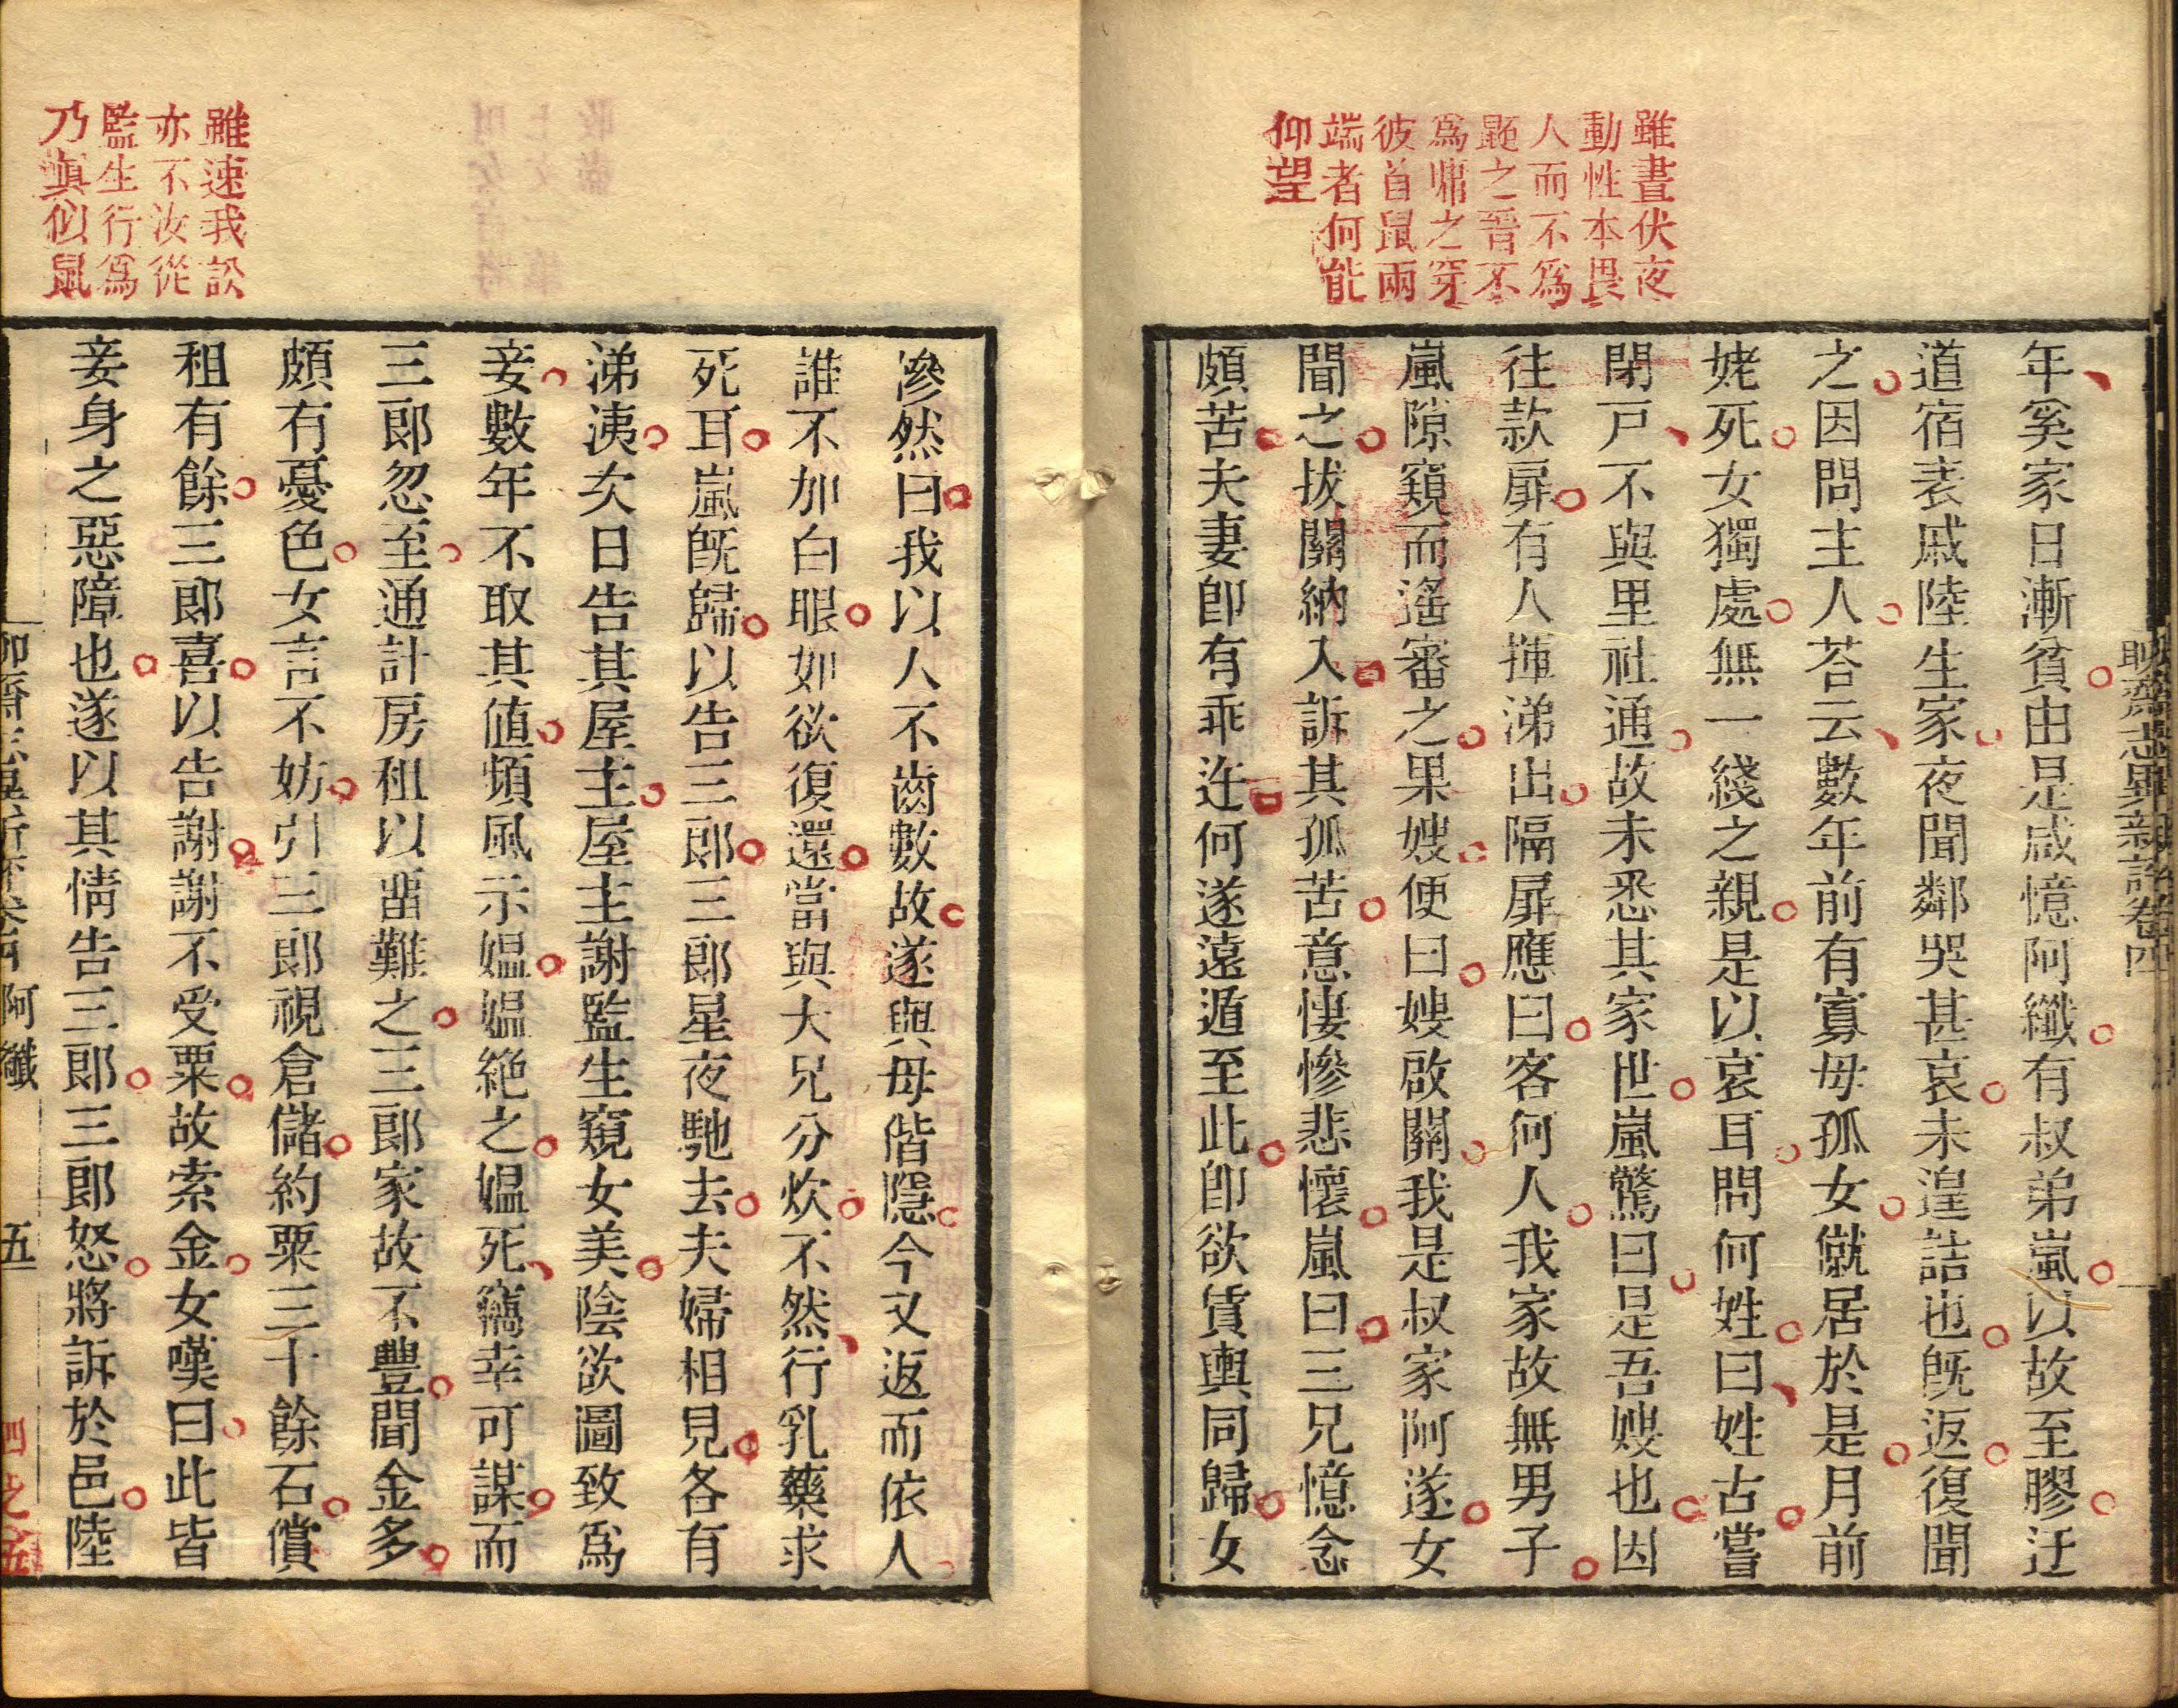 雖晝伏夜
動性本畏
人而不爲
題之晉不
爲嘯之穿
彼首鼠兩
端者何能
仰望
聊齋志異新評卷四
年奚家日漸貧由是咸憶阿纖有叔弟嵐以故至膠迂
道宿表戚陸生家夜聞鄰哭甚哀未遑詰也旣返復聞
之因問主人荅云數年前有寡母孤女僦居於是月前
姥死女獨處無一綫之親是以哀耳問何姓曰姓古嘗
閉戸不與里社通故未悉其家世嵐驚曰是吾嫂也因
往款扉有人揮涕出隔扉應曰客何人我家故無男子
嵐隙窺而遙審之果嫂便曰嫂啟關我是叔家阿遂女
聞之拔關納入訴其孤苦意悽慘悲懷嵐曰三兄憶念
頗苦夫妻卽有乖迕何遂遠遁至此卽欲賃輿同歸女
雖速我訟
亦不汝從
監生行爲
乃眞似鼠
慘然曰我以人不齒數故遂與母偕隱今又返而依人
誰不加白眼如欲復還當與大兄分炊不然行乳藥求
死耳嵐旣歸以告三郎三郎星夜馳去夫婦相見各有
涕洟次日告其屋主屋主謝監生窺女美陰欲圖致爲
妾數年不取其值頻風示媼媼絶之媼死竊幸可謀而
三郎忽至通計房租以畱難之三郎家故不豐聞金多
頗有憂色女言不妨引三郎視倉儲約粟三十餘石償
租有餘三郎喜以告謝謝不受粟故索金女嘆曰此皆
妾身之惡障也遂以其情告三郎三郎怒將訴於邑陸
聊齋志異新評卷四 阿纖 五 四之五